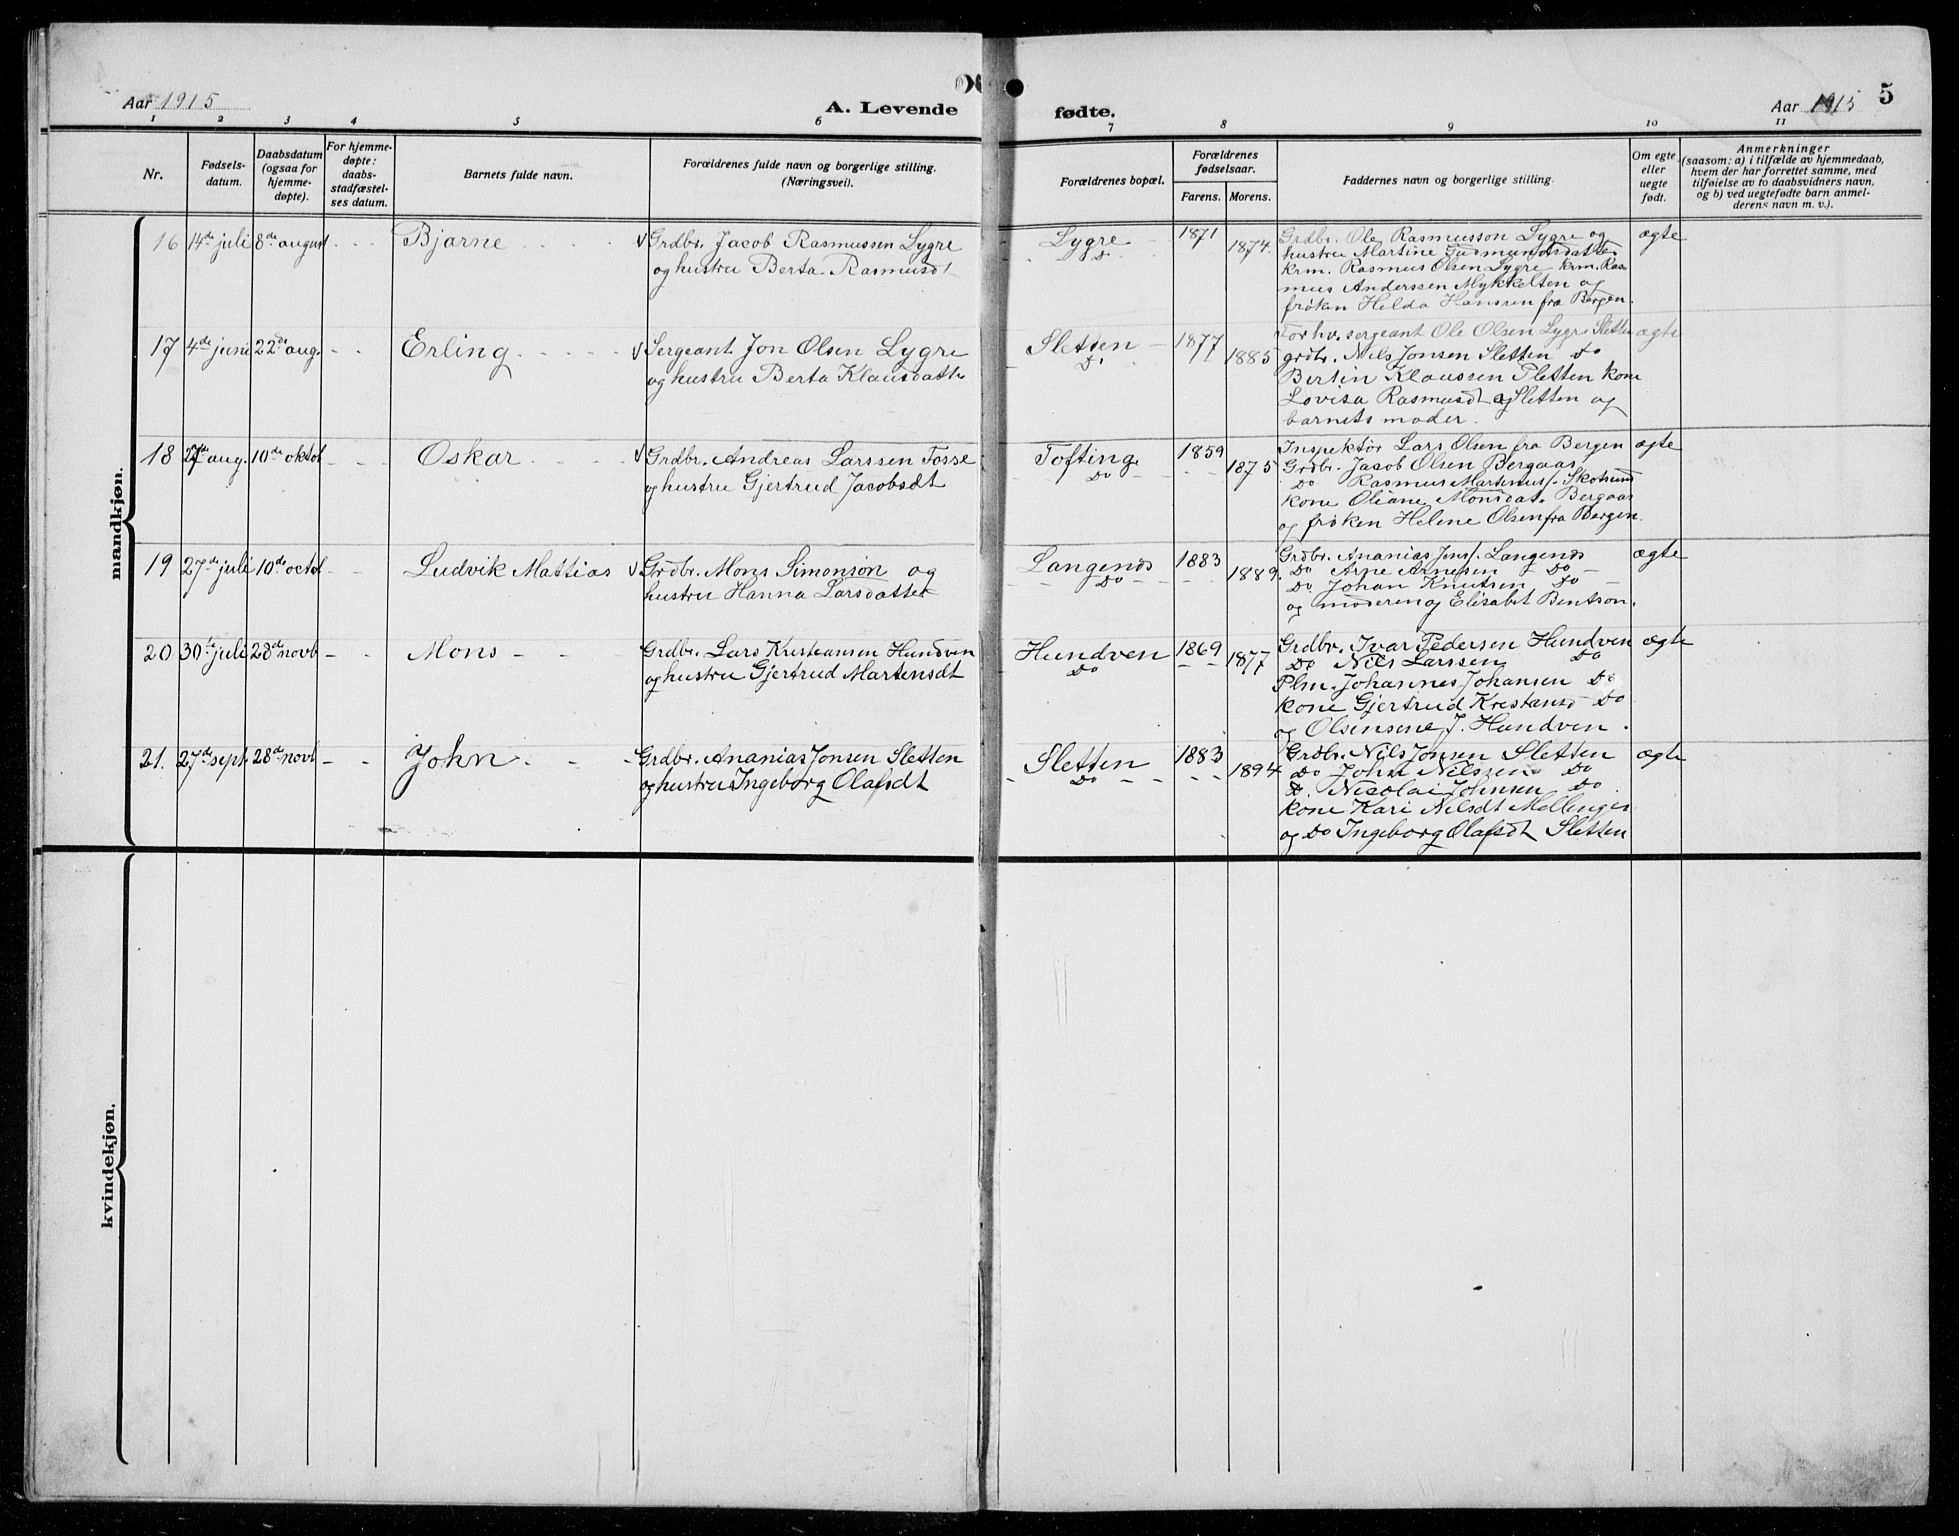 Aar 1915
A. Levende
fødte.
Aar 1915
5
1 2 3 4 5 6 7 8 9 10 11
Nr.
Fødsels-
datum.
Daabsdatum
(ogsaa for
hjemme-
døpte).
For hjemme-
døpte:
daabs-
stadfæstel-
ses datum.
Barnets fulde navn.
Forældrenes fulde navn og borgerlige stilling.
(Næringsvei).
Forældrenes bopæl.
Forældrenes
fødselsaar.
Farens. Morens.
Faddernes navn og borgerlige stilling.
Om egte
eller
uegte
født.
Anmerkninger
(saasom: a) i tilfælde av hjemmedaab,
hvem der har forrettet samme, med
tilføielse av to daabsvidners navn,
og b) ved uegtefødte barn anmel-
derens navn m. v.).
mandkjøn.
16 14de juli 8de august - - Bjarne
Grdbr. Jacob Rasmussen Lygre
og hustru Berta Rasmusdt
Lygre
Do
1871
1874
Grdbr. Ole Rasmusson Lygre og
hustru Martine Gudmundsdatter
krm. Rasmus Olsen Lygre krm. Ras-
mus Anderssen Mykkelten og
frøken Helda Hanssen fra Bergen.
ægte
17 4de juni 22de aug. - - Erling
Sergeant Jon Olsen Lygre
og hustru Berta Klausdatte
Sletten
Do
1877
1885
Forhv. sergeant Ole Olsen Lygre Sletten
grdbr. Nils Jonsen Sletten Do
Bertin Klaussen Sletten kone
Lovisa Rasmusdt Sletten og
barnets moder.
ægte
18 27de aug. 10de oktob - - Oskar
Grdbr. Andreas Larssen Fosse
og hustru Gjertrud Jacobsdt
Tofting
Do
1859
1875
Inspektør Lars Olsen fra Bergen
Grdbr. Jacob Olsen Bergaas
Do Rasmus Martinus/. Skotsund
kone Oliane Monsdat. Bergaas
og frøken Helene Olsen fra Bergen.
ægte
19 27de juli 10de octob - - Ludvik Mattias
Grdbr. Mons Simonson og
hustru Hanna Larsdatter
Langenes
Do
1883
1889.
Grdbr. Ananias Jens/. Langenes
Do Arne Arnesen Do
Do Johan Knutsen Do
og moderen og Elisabet Bentson.
ægte
20 30te juli 28de novb - - Mons
Grdbr. Lars Kristiansen Hundven
og hustru Gjertrud Martensdt
Hundven
Do
1869
1877
Grdbr. Ivar Pedersen Hundven
Do Nils Larssen Do
Plm. Johannes Johansen Do
kone Gjertrud Kristansd Do
og Olsensene J. Hundven.
ægte
21. 27de sept. 28de novb - - John
Grdbr. Ananias Jonsen Sletten
og hustru Ingeborg Olafsdt
Sletten
Do
1883
1894
Grdbr. Nils Jonsen Sletten
Do John Nilssen Do
Do. Nicolai Johnsen Do
kone Kari Nilsdt Mellingen
og Do Ingeborg Olafsdt Sletten
ægte
kvindekjøn.